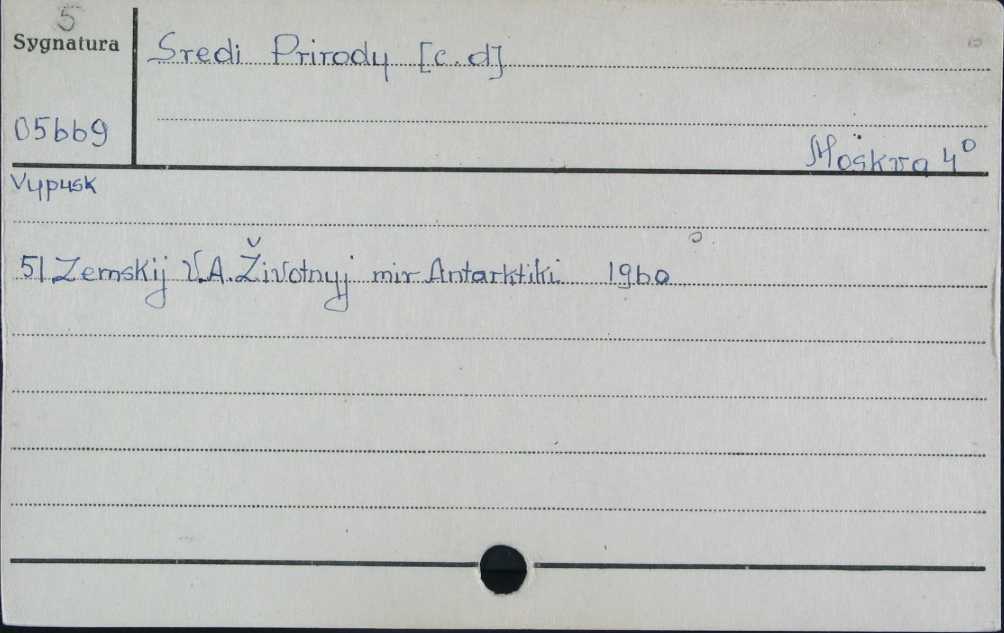 5
Sygnatura
Sredi Prirody [c.d]
05669
Moskva 4°
Vypusk
51 Zemskij V.A. Životnyj mir Antarktiki 1960